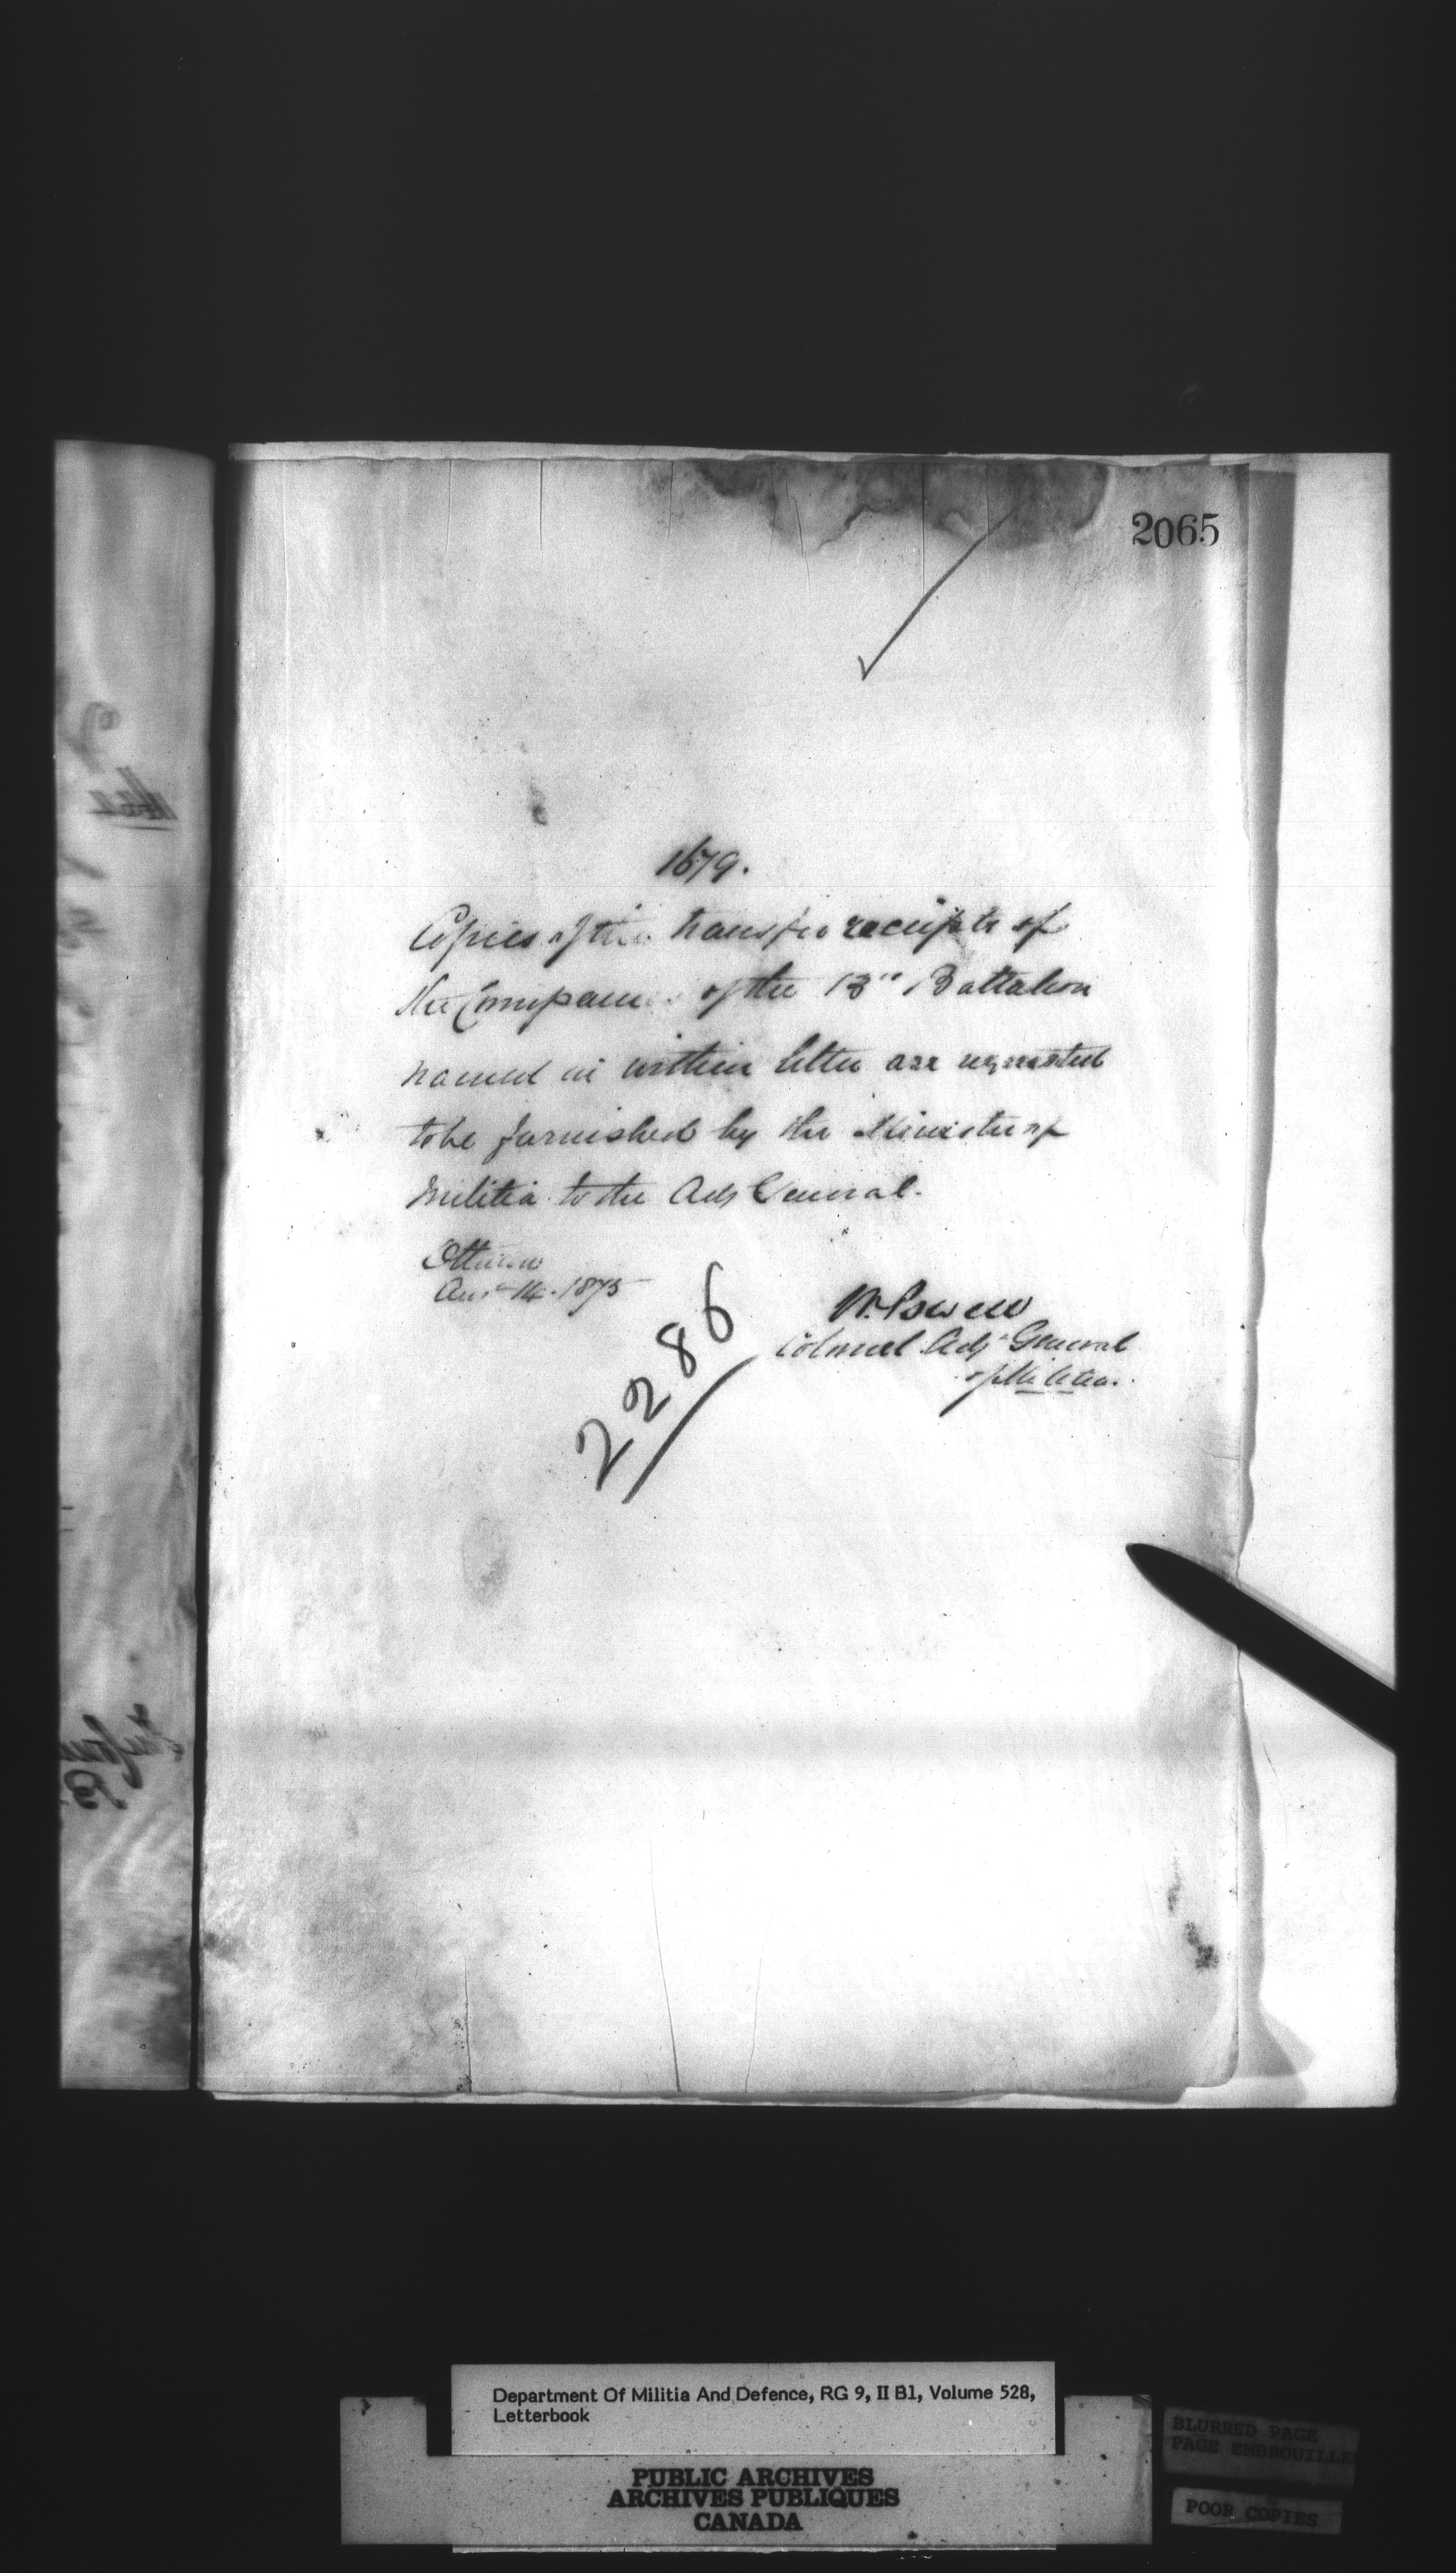 2065
1679.
Copies of the transfer receipts of
the Companies of the 13th Battalion
named in within letter are requested
to be furnished by the Minister of
Militia to the Adj General.
Ottawa
14. 1875
W. Powell
Colonel Adjt General
of Militia.
2286
Department Of Militia And Defence, RG 9, II B1, Volume 528,
Letterbook
PUBLIC ARCHIVES
ARCHIVES PUBLIQUES
CANADA
BLURRED PAGE
PAGE EMBROUILLEE
POOR COPIES